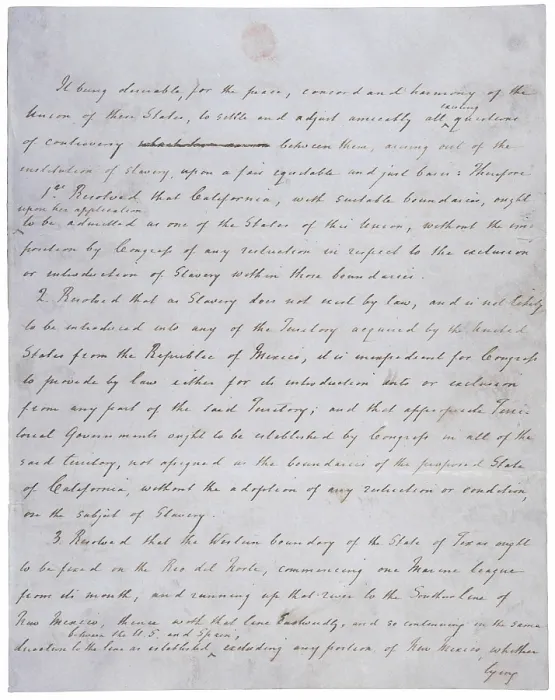 It being desirable, for the peace, concord and harmony of the
Union of these States, to settle and adjust amicably all existing questions
of controversy between them, arising out of the
institution of Slavery, upon a fair equitable and just basis: Therefore
1st. Resolved that California, with suitable boundaries, ought
upon her application
to be admitted as one of the States of this Union, without the im-
position by Congress of any restriction in respect to the exclusion
or introduction of Slavery within those boundaries.
2. Resolved that as Slavery does not exist by law, and is not likely
to be introduced into any of the Territory acquired by the United
States from the Republic of Mexico, it is inexpedient for Congress
to provide by law either for its introduction into or exclusion
from any part of the said Territory; and that appropriate Terri-
torial Governments ought to be established by Congress in all of the
said territory, not assigned as the boundaries of the proposed State
of California, without the adoption of any restriction or condition
on the subject of Slavery.
3. Resolved that the Western boundary of the State of Texas ought
to be fixed on the Rio del Norte, commencing one Marine league
from its mouth, and running up that river to the Southern line of
New Mexico, thence with that line Eastwardly, and so continuing in the same
between the U.S. and Spain,
direction to the line as established, excluding any portion of New Mexico, whether
lying